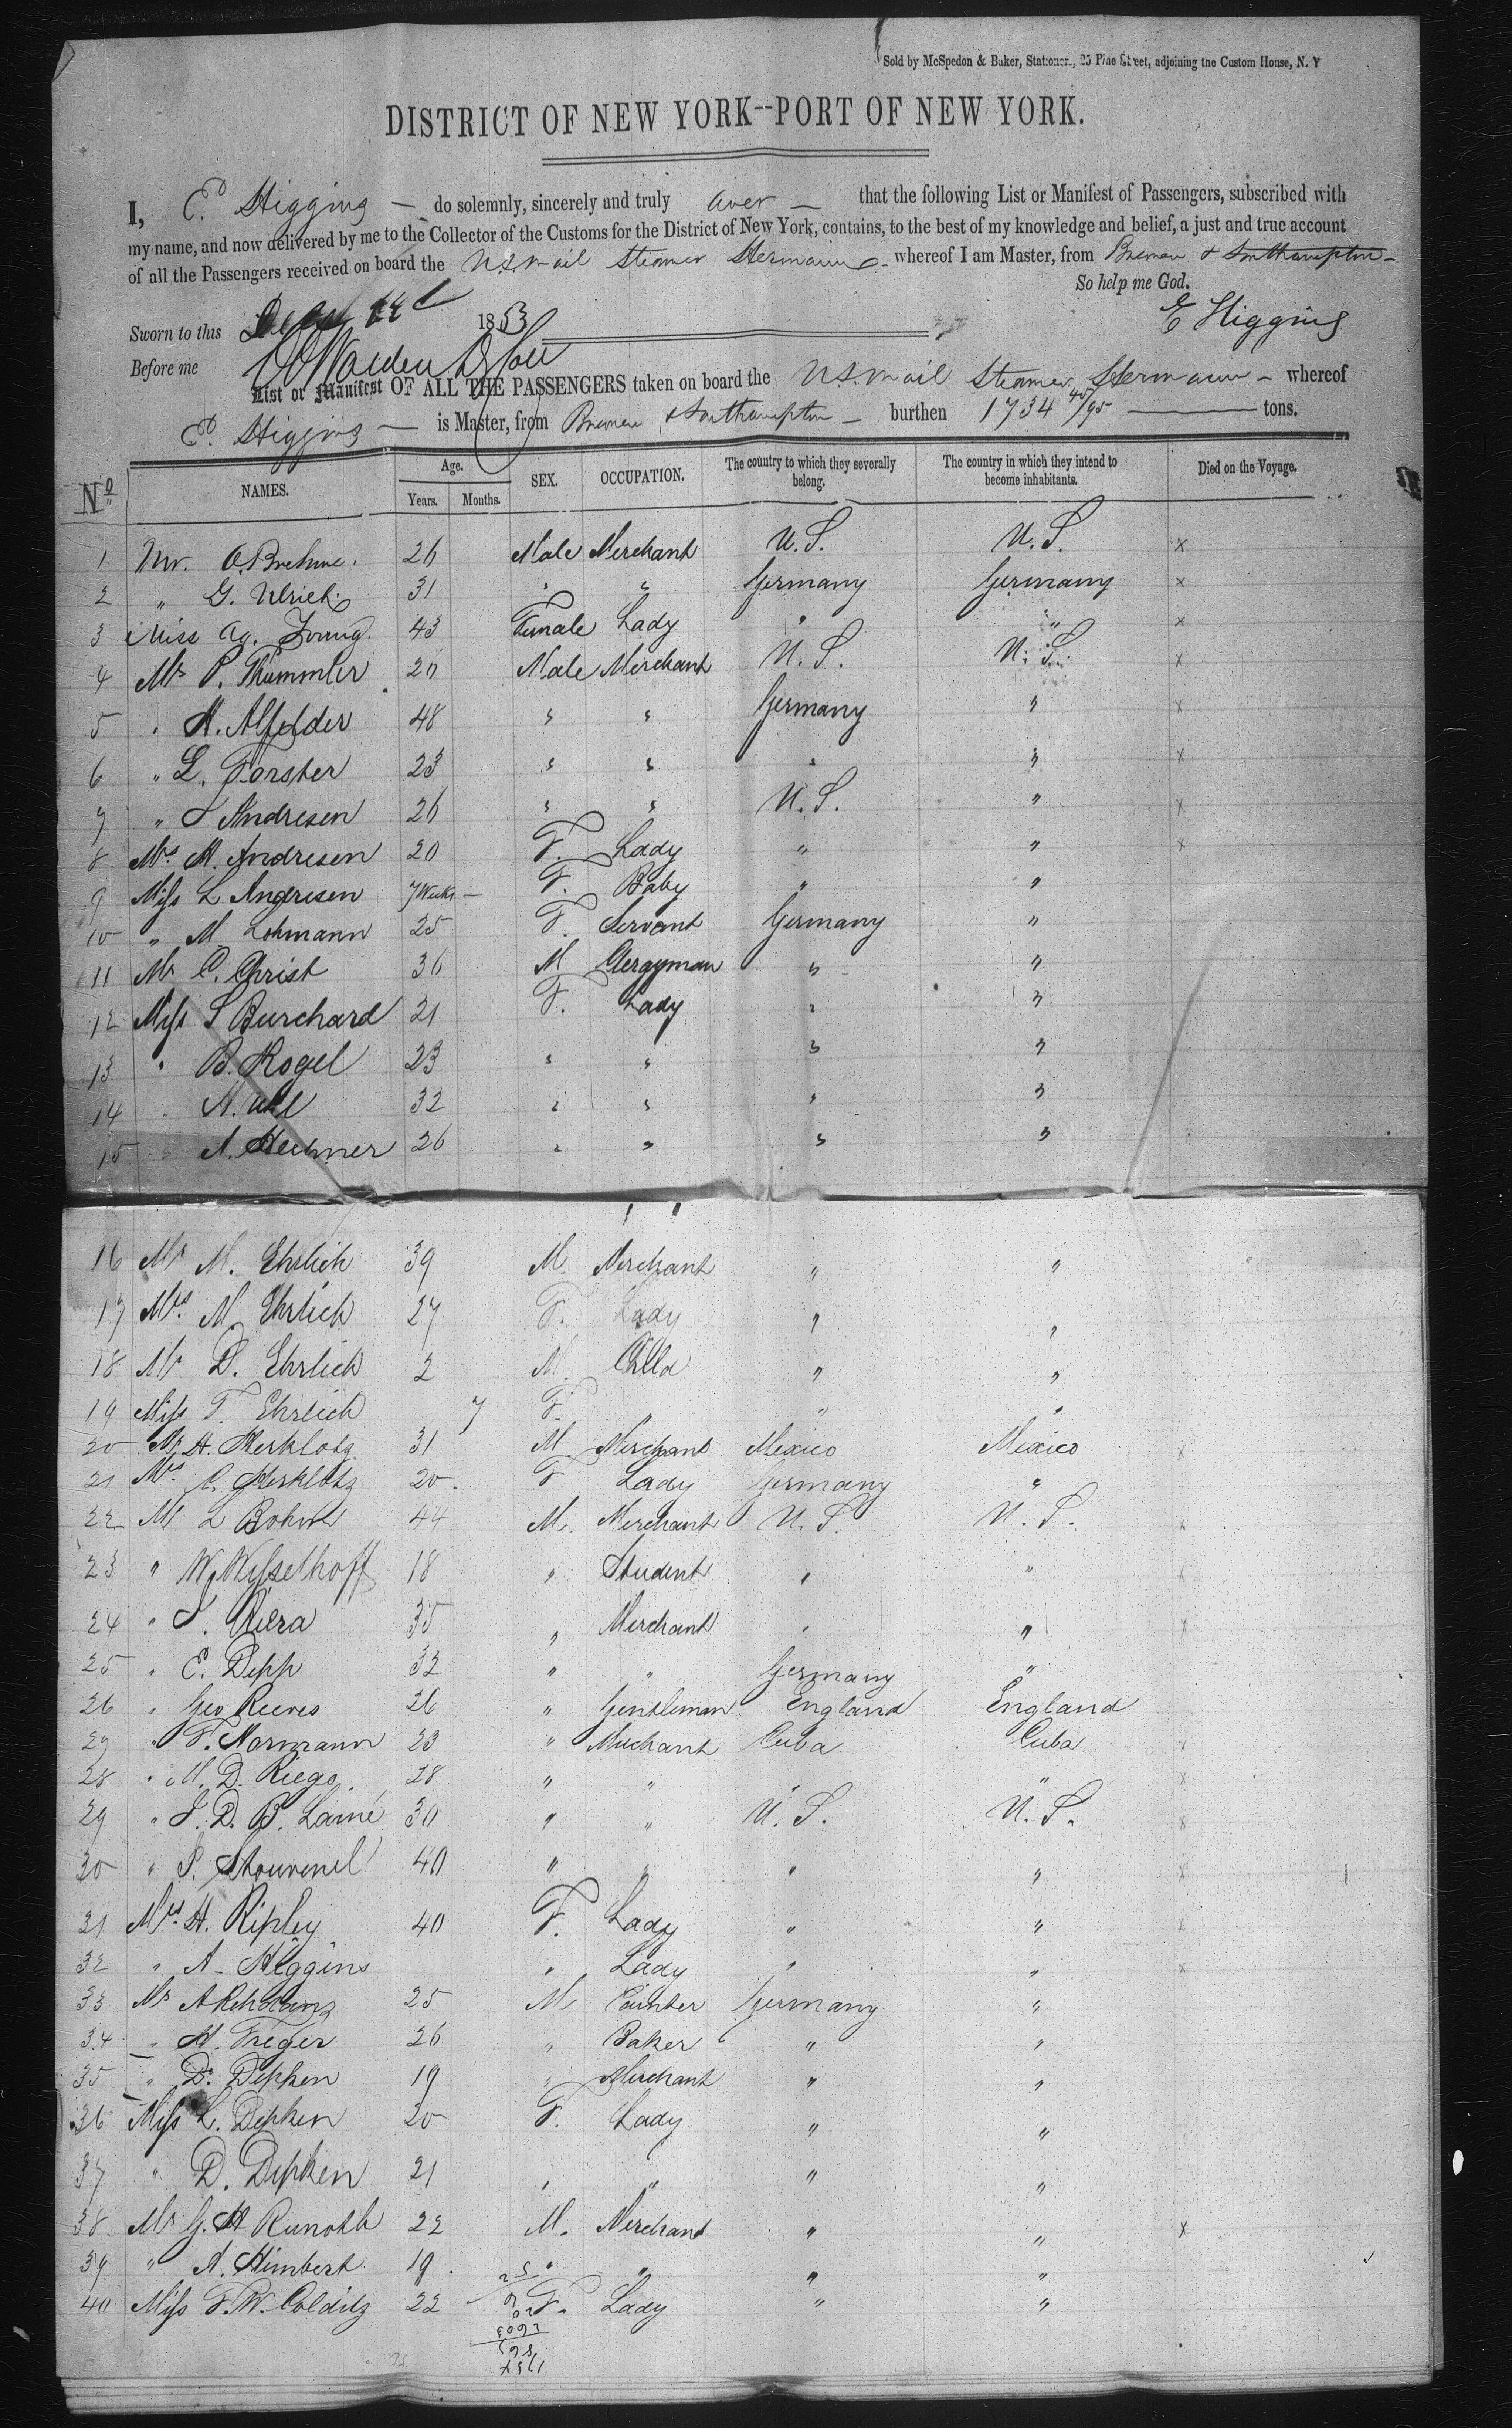 Sold by McSpedon & Baker, Stationers, 25 Pine Street, adjoining the Custom House, N. Y
DISTRICT OF NEW YORK--PORT OF NEW YORK.
I, E. Higgins — do solemnly, sincerely and truly aver — that the following List or Manifest of Passengers, subscribed with
my name, and now delivered by me to the Collector of the Customs for the District of New York, contains, to the best of my knowledge and belief, a just and true account
of all the Passengers received on board the U.S. Mail Steamer Hermann — whereof I am Master, from Bremen & Southampton —
So help me God.
Sworn to this 1853 E Higgins
Before me
List or Manifest OF ALL THE PASSENGERS taken on board the U.S. Mail Steamer Hermann — whereof
E. Higgins — is Master, from Bremen & Southampton — burthen 1734 45/95 — tons.
No. NAMES. Age. Years. Months. SEX. OCCUPATION. The country to which they severally belong. The country in which they intend to become inhabitants. Died on the Voyage.
1 Mr. O. Brehme. 26 Male Merchant U.S. U.S. x
2 " G. Ulrich 31 " " Germany Germany x
3 Miss Ag. Young. 43 Female Lady " " x
4 Mr P. Thümmler 26 Male Merchant U.S. U.S. x
5 " H. Alfelder 48 " " Germany " x
6 " L. Forster 23 " " " " x
7 " J Andresen 26 " " U.S. " x
8 Mrs H. Andresen 20 F. Lady " " x
9 Miss L Andresen 7 Weeks — F. Baby " "
10 " M. Lohmann 25 F. Servant Germany "
11 Mr C. Christ 36 M Clergyman " "
12 Miss S Burchard 21 F. Lady " "
13 " B. Kogel 23 " " " "
14 " A. Uhl 32 " " " "
15 " A. Hechner 26 " " " "
16 Mr M. Ehrlich 39 M. Merchant " "
17 Mrs. M. Ehrlich 27 F. Lady " "
18 Mr D. Ehrlich 2 M. Child " "
19 Miss F. Ehrlich 7 F. " " "
20 Mr H. Herklotz 31 M. Merchant Mexico Mexico x
21 Mrs C. Herklotz 20. F Lady Germany "
22 M L Bohm 44 M. Merchant U.S. U.S. x
23 " W. Wysselhoff 18 " Student " " x
24 " J. Riera 35 " Merchant " " x
25 " E. Depp 32 " " Germany "
26 " Geo Reeves 26 " Gentleman England England
27 " F. Normann 23 " Merchant Cuba Cuba x
28 " M. D. Riego. 28 " " " " x
29 " J. D. B. Lamé 30 " " U.S. U.S. x
30 " P. Stouvenel 40 " " " " x
31 Mrs. H. Ripley 40 F. Lady " " x
32 " A. Higgins " Lady " " x
33 Mr A 25 M Painter Germany "
34 " H. Treger 26 " Baker " "
35 " D. Depken 19 " Merchant " "
36 Miss L. Depken 20 F. Lady " "
37 " D. Depken 21 " " " "
38 Mr G. H Runoth 22 M. Merchant " " x
39 " A. Himbert 19. " " " "
40 Miss F. W. Colditz 22 F. Lady " "